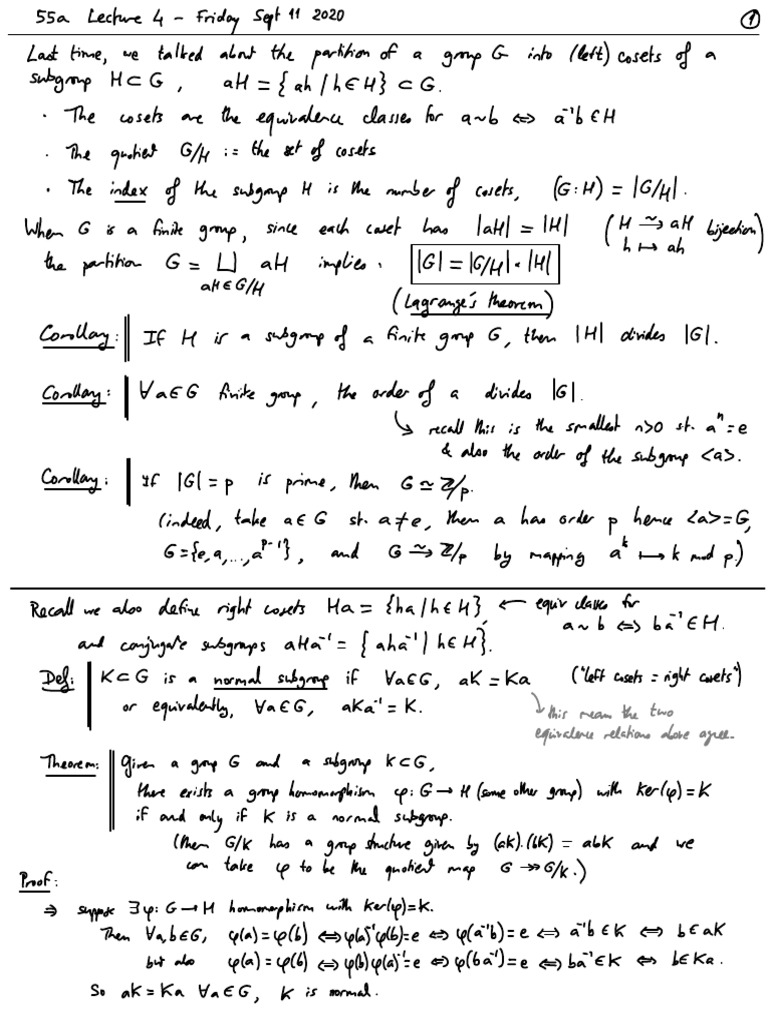 55a Lecture 4 - Friday Sept 11 2020 ①
Last time, we talked about the partition of a group G into (left) cosets of a
subgroup H⊂G, aH = {ah / h∈H} ⊂ G.
· The cosets are the equivalence classes for a~b ⇔ a⁻¹b ∈ H
· The quotient G/H := the set of cosets
· The index of the subgroup H is the number of cosets, (G:H) = |G/H|.
When G is a finite group, since each coset has |aH| = |H| (H ≃→ aH bijection)
h ↦ ah
the partition G = ⊔ aH implies: |G| = |G/H|·|H|
aH∈G/H
(Lagrange's theorem)
Corollary: If H is a subgroup of a finite group G, then |H| divides |G|.
Corollary: ∀a∈G finite group, the order of a divides |G|.
↳ recall this is the smallest n>0 st. aⁿ=e
& also the order of the subgroup <a>.
Corollary: If |G|=p is prime, then G ≃ ℤ/p.
(indeed, take a∈G st. a≠e, then a has order p hence <a>=G,
G={e,a,...,aᵖ⁻¹}, and G ≃→ ℤ/p by mapping aᵏ ↦ k mod p.)
Recall we also define right cosets Ha = {ha / h∈H} ← equiv classes for
a~b ⇔ ba⁻¹∈H.
and conjugate subgroups aHa⁻¹ = {aha⁻¹ | h∈H}.
Def: K⊂G is a normal subgroup if ∀a∈G, aK = Ka ("left cosets = right cosets")
or equivalently, ∀a∈G, aKa⁻¹ = K.
↳ this means the two
equivalence relations above agree.
Theorem: Given a group G and a subgroup K⊂G,
there exists a group homomorphism φ: G → H (some other group) with Ker(φ)=K
if and only if K is a normal subgroup.
(then G/K has a group structure given by (aK).(bK) = abK and we
can take φ to be the quotient map G ↠ G/K.)
Proof:
⇒ suppose ∃φ: G → H homomorphism with Ker(φ)=K.
Then ∀a,b∈G, φ(a)=φ(b) ⇔ φ(a)⁻¹φ(b)=e ⇔ φ(a⁻¹b)=e ⇔ a⁻¹b∈K ⇔ b∈aK
but also φ(a)=φ(b) ⇔ φ(b)φ(a)⁻¹=e ⇔ φ(ba⁻¹)=e ⇔ ba⁻¹∈K ⇔ b∈Ka.
So aK=Ka ∀a∈G, K is normal.